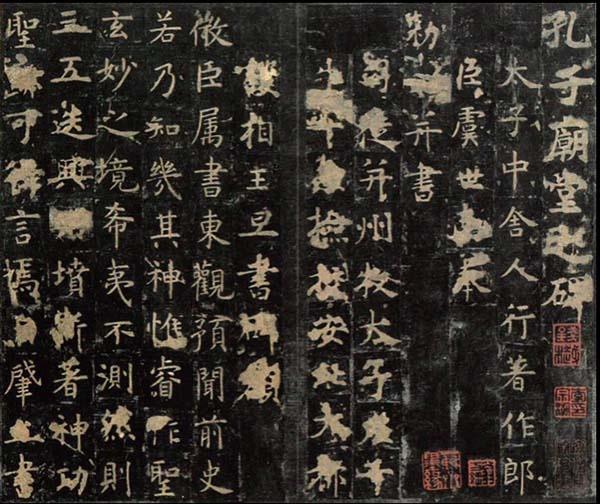 孔子廟堂之碑
太子中舍人行著作郎
臣虞世南奉
勅并書
司徒并州牧太子左千
牛率兼檢校安北大都
護相王旦書碑額
微臣属書東觀預聞前史
若乃知幾其神惟睿作聖
玄妙之境希夷不測然則
三五迭興墳斯著神功
聖可得言焉自肇立書